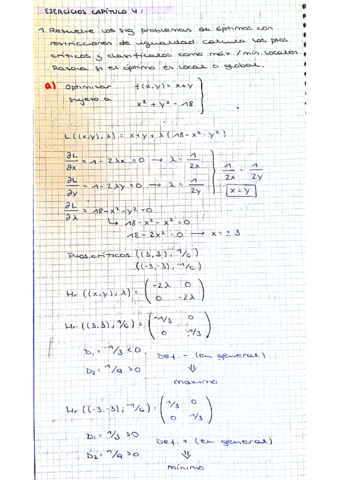 EJERCICIOS CAPÍTULO 4:
1. Resuelve los sig problemas de óptimos con
restricciones de igualdad. Calcula los ptos.
críticos y clasifícalos como máx / mín. locales
Razona si el óptimo es local o global.
a) Optimizar f(x,y) = x+y
sujeto a x² + y² = 18
L((x,y), λ) = x+y + λ(18 - x² - y²)
∂L/∂x = 1 - 2λx = 0 → λ = 1/2x
∂L/∂y = 1 - 2λy = 0 → λ = 1/2y
1/2x = 1/2y
x = y
∂L/∂λ = 18 - x² - y² = 0
↳ 18 - x² - x² = 0
18 - 2x² = 0 → x = ± 3
Ptos. críticos: ((3,3); 1/6)
((-3,-3); -1/6)
HL ((x,y); λ) = (-2λ 0
0 -2λ)
HL ((3,3); 1/6) = (-1/3 0
0 -1/3)
D₁ = -1/3 < 0 Def. - (en general)
D₂ = 1/9 > 0 ⇓
máximo
HL ((-3,-3); -1/6) = (1/3 0
0 1/3)
D₁ = 1/3 > 0 Def. + (en general)
D₂ = 1/9 > 0 ⇓
mínimo